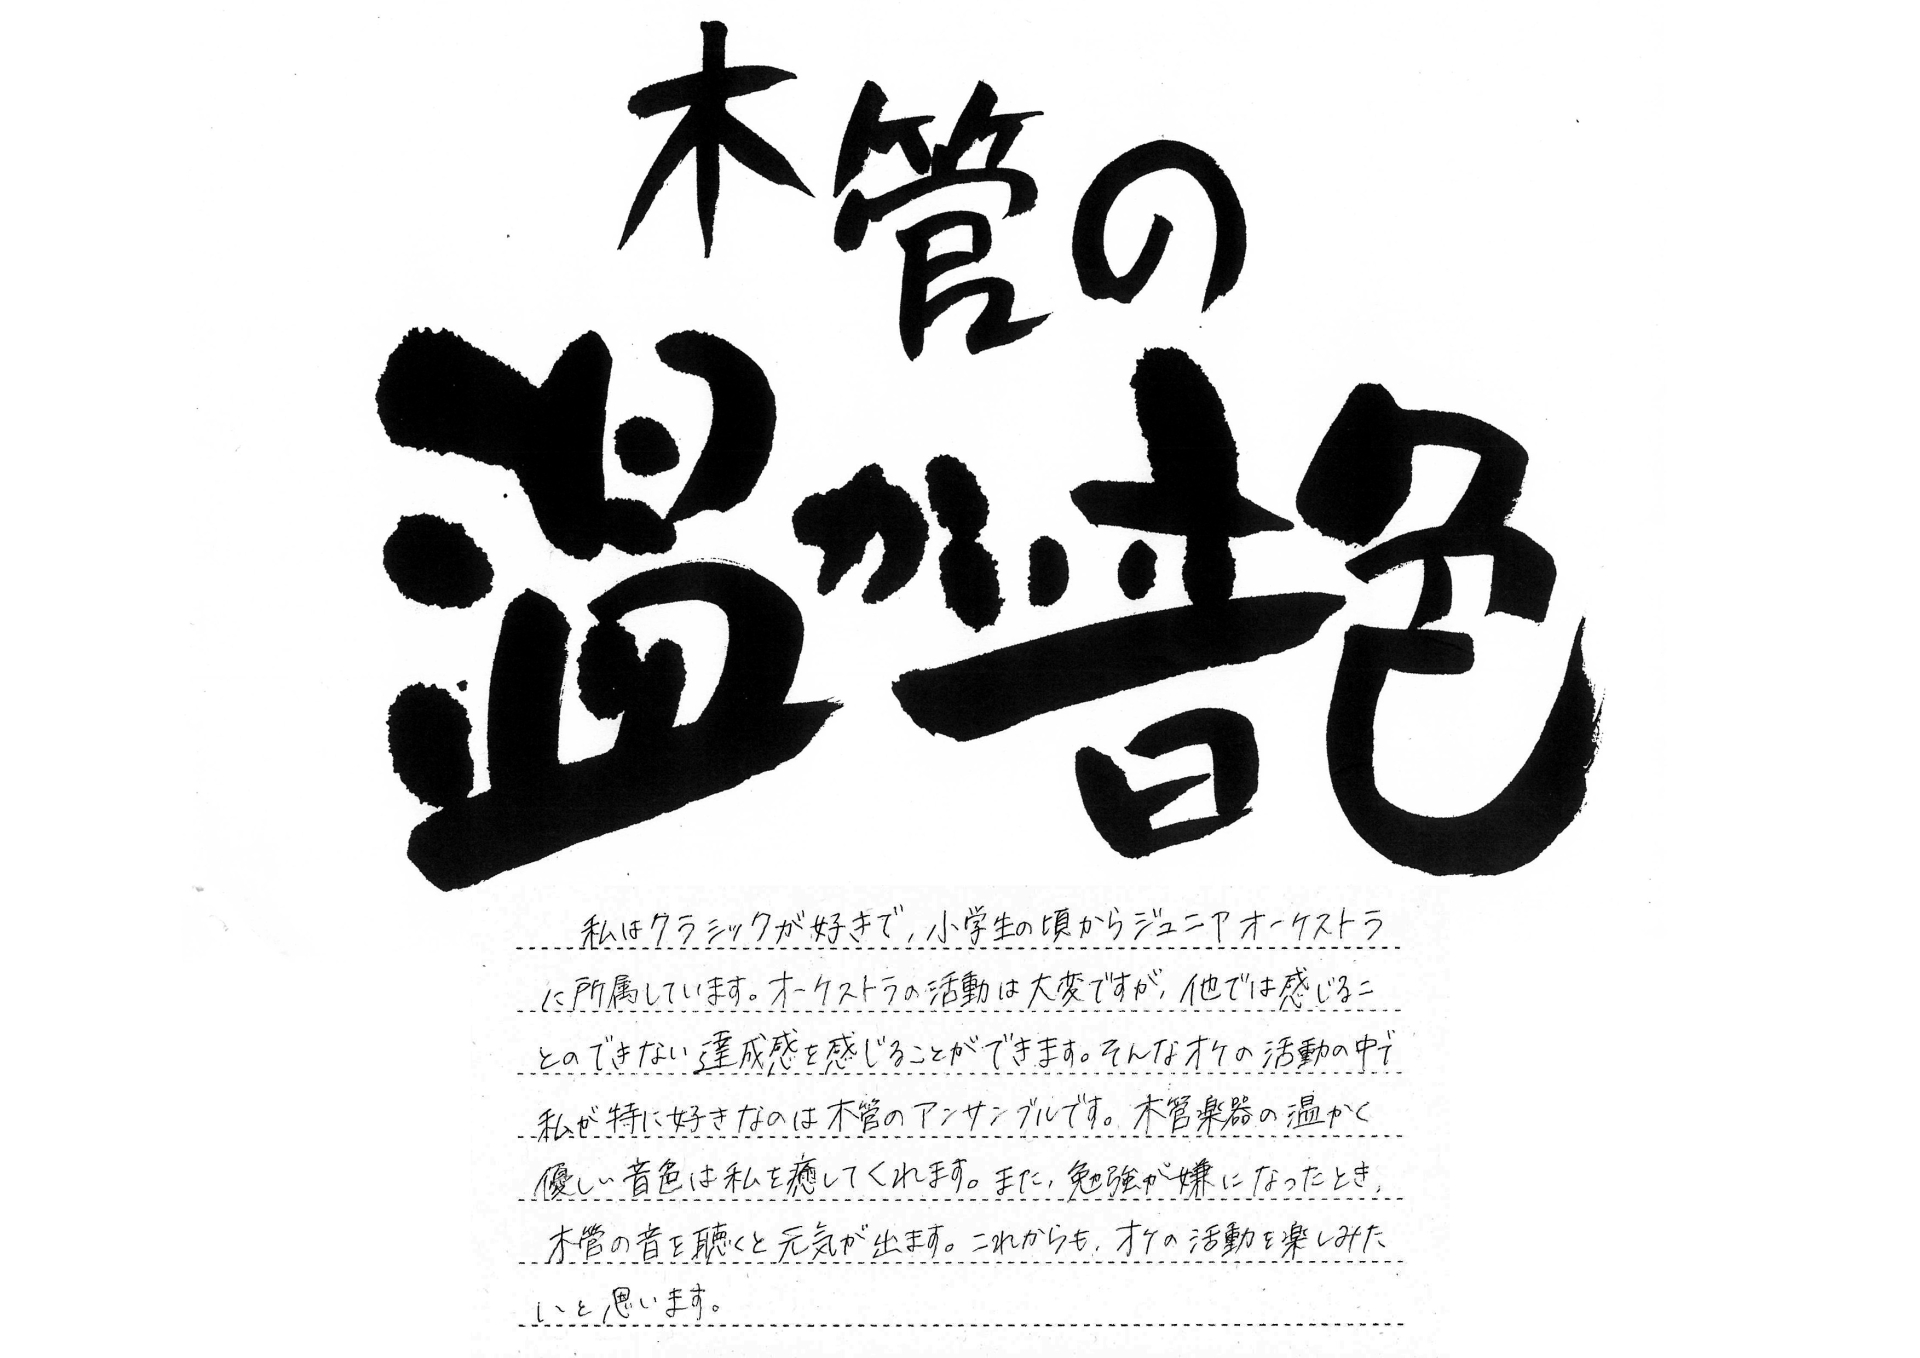 木管の
温かい音色
私はクラシックが好きで、小学生の頃からジュニアオーケストラ
に所属しています。オーケストラの活動は大変ですが、他では感じるこ
とのできない達成感を感じることができます。そんなオケの活動の中で
私が特に好きなのは木管のアンサンブルです。木管楽器の温かく
優しい音色は私を癒してくれます。また、勉強が嫌になったとき、
木管の音を聴くと元気が出ます。これからも、オケの活動を楽しみた
いと思います。